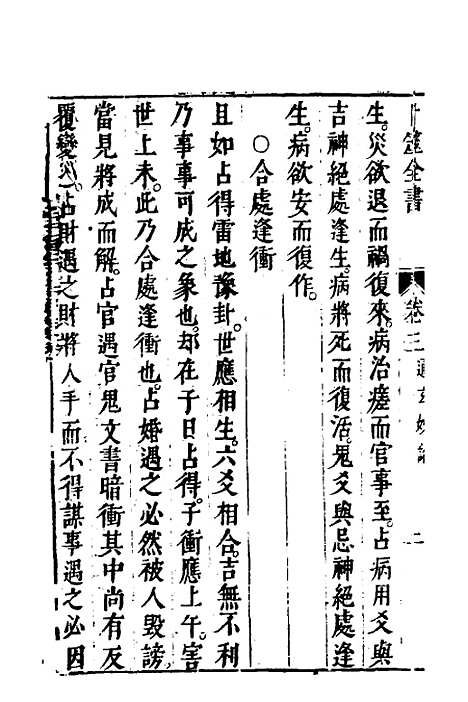 卜筮全書
卷三 通玄妙論
二
生。災欲退而禍復來。病治瘥而官事至。占病用爻與
吉神絕處逢生。病將死而復活。鬼爻與忌神絕處逢
生。病欲安而復作。
○合處逢衝
且如占得雷地豫卦。世應相生。六爻相合。吉無不利
乃事事可成之象也。却在子日占得。子衝應上午。害
世上未。此乃合處逢衝也。占婚遇之必然被人毀謗。
當見將成而解。占官遇官鬼文書暗衝其中尚有反
覆變。占財遇之財將入手而不得謀事遇之必因